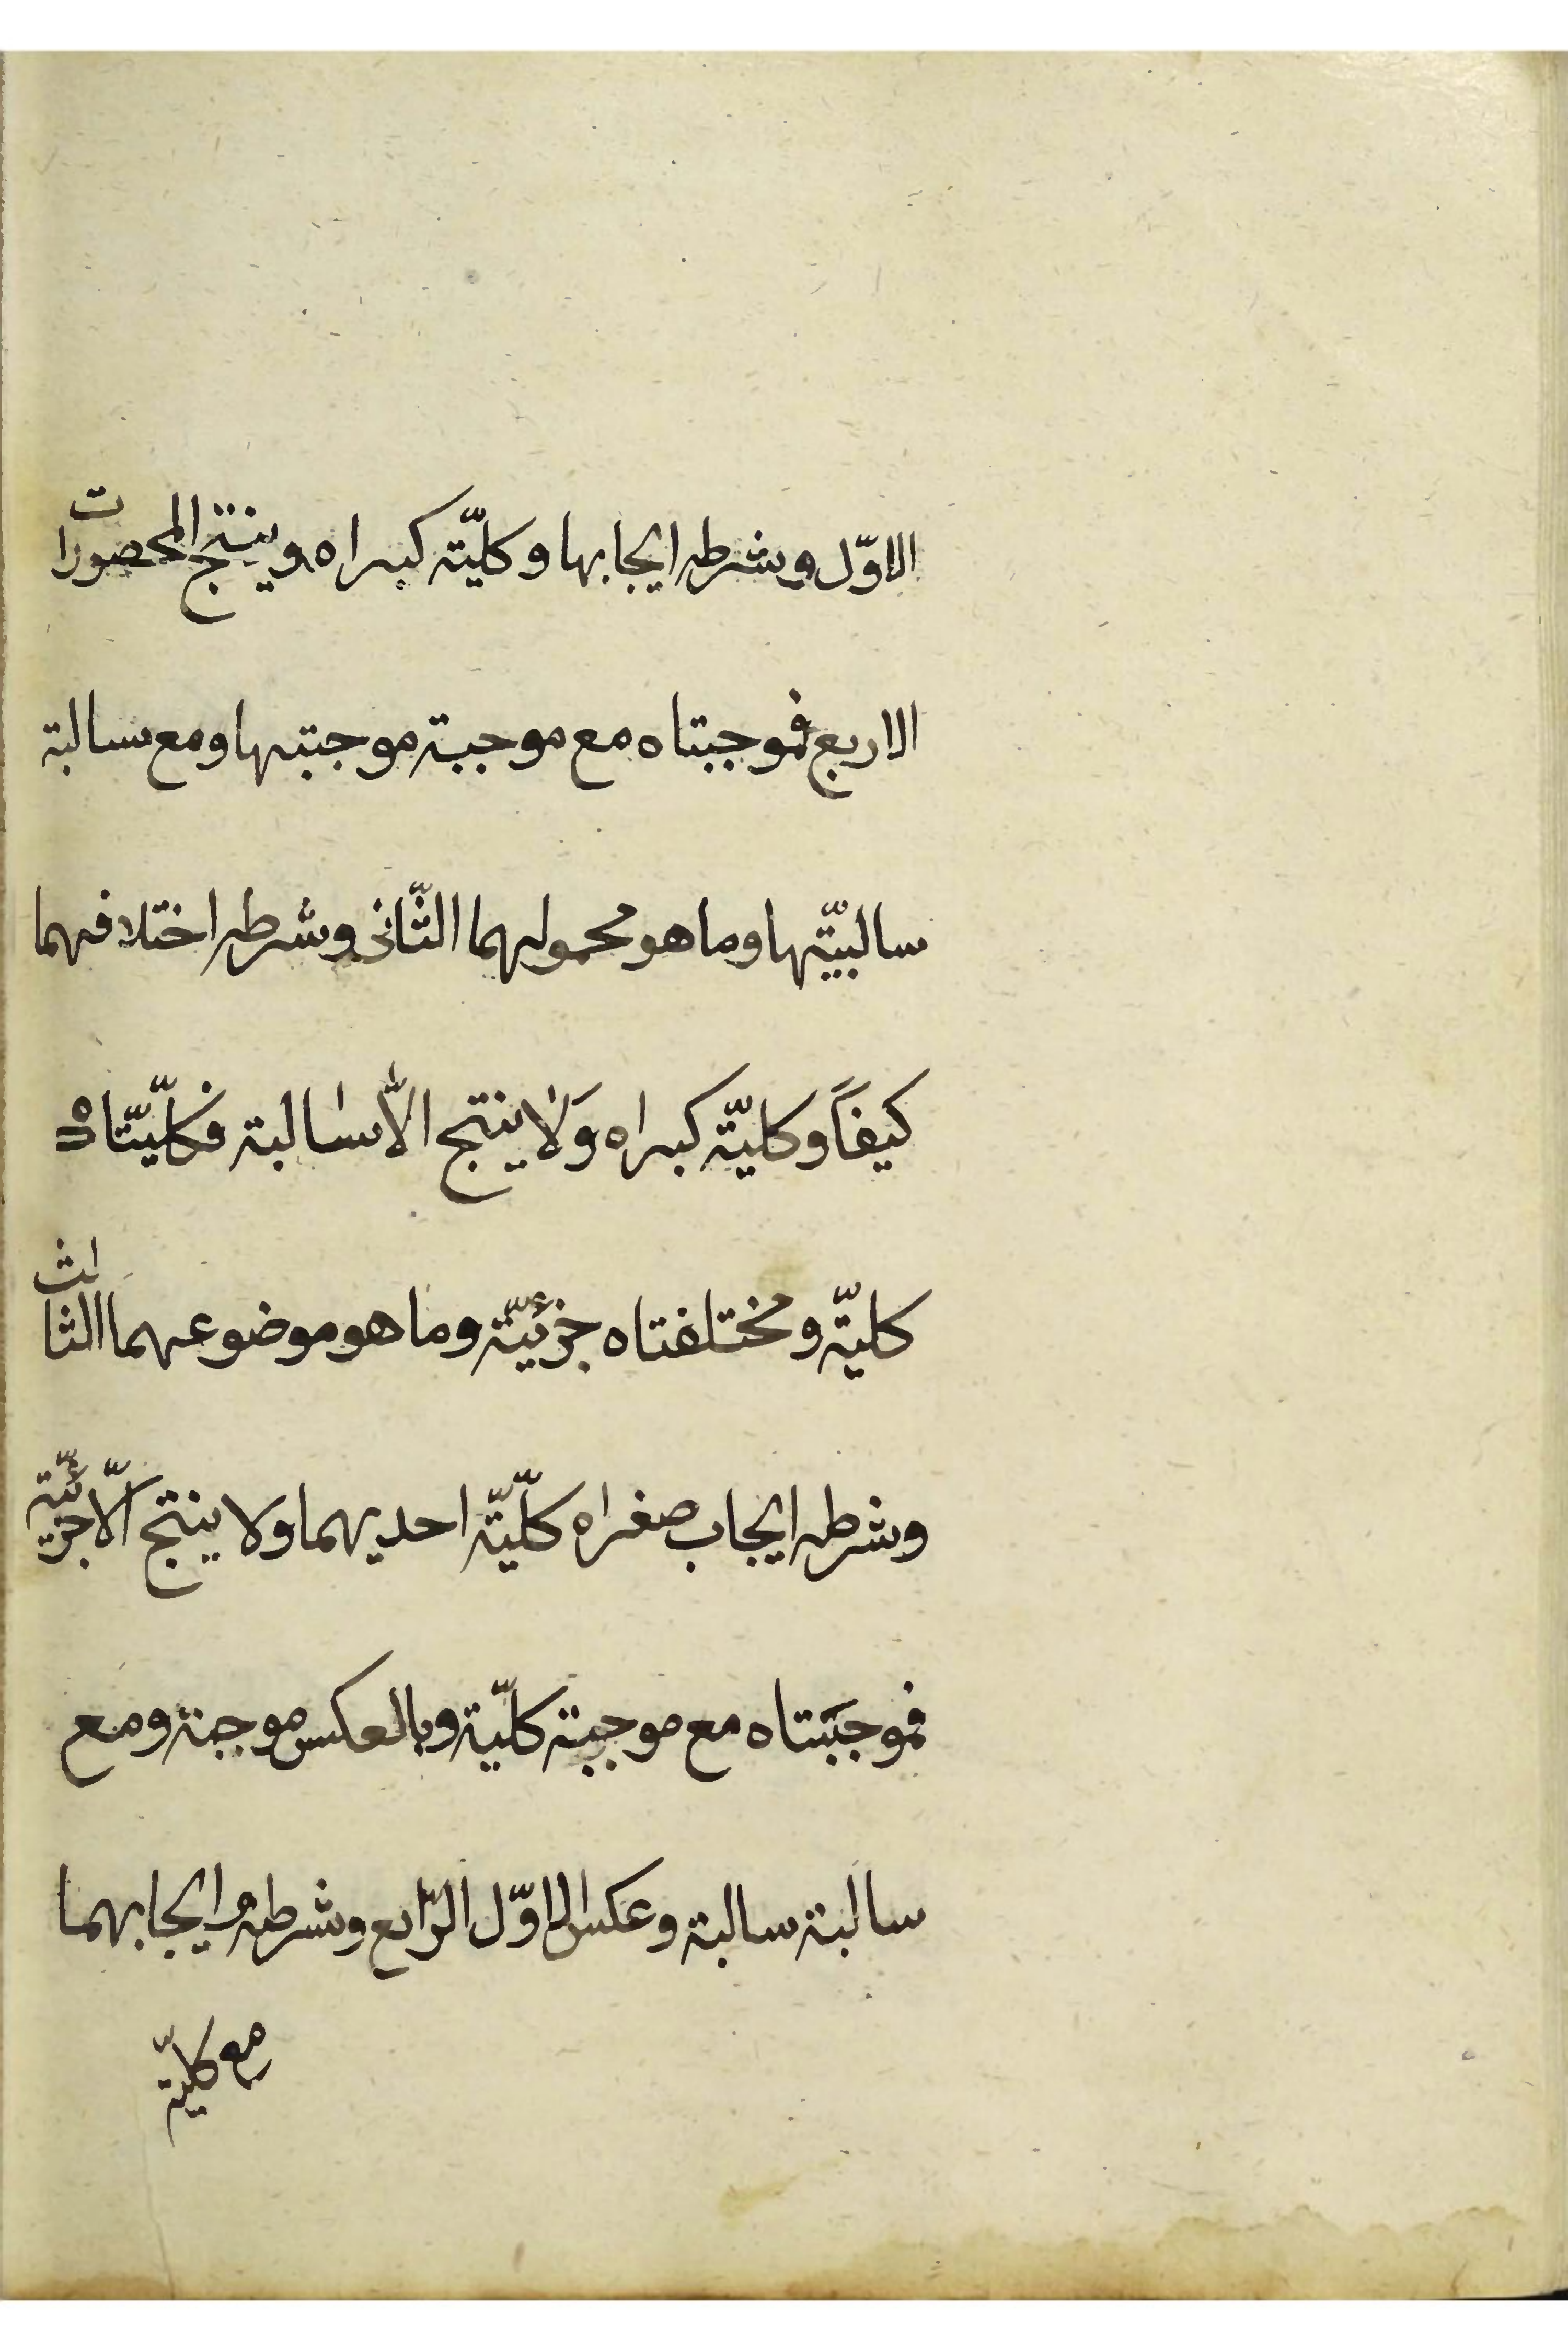 الاوّل وشرطه ايجابها وكليّة كبراه وينتج المحصورات
الاربع فموجبتاه مع موجبة موجبتها ومع سالبة
سالبيّتها وما هو محمولهما الثّانى وشرطه اختلافهما
كيفاً وكليّة كبراه وَلا ينتج الاّ سالبة فكلّيّتاه
كليّة ومختلفتاه جزئيّة وما هو موضوعهما الثالث
وشرطه ايجاب صغراه كلّيّة احديهما ولا ينتج الّا جزئيّة
فموجبَتاه مع موجبة كلّية وبالعكس موجبة ومع
سالبة سالبة وعكس الاوّل الرّابع وشرطه ايجابهما
مع كليّة